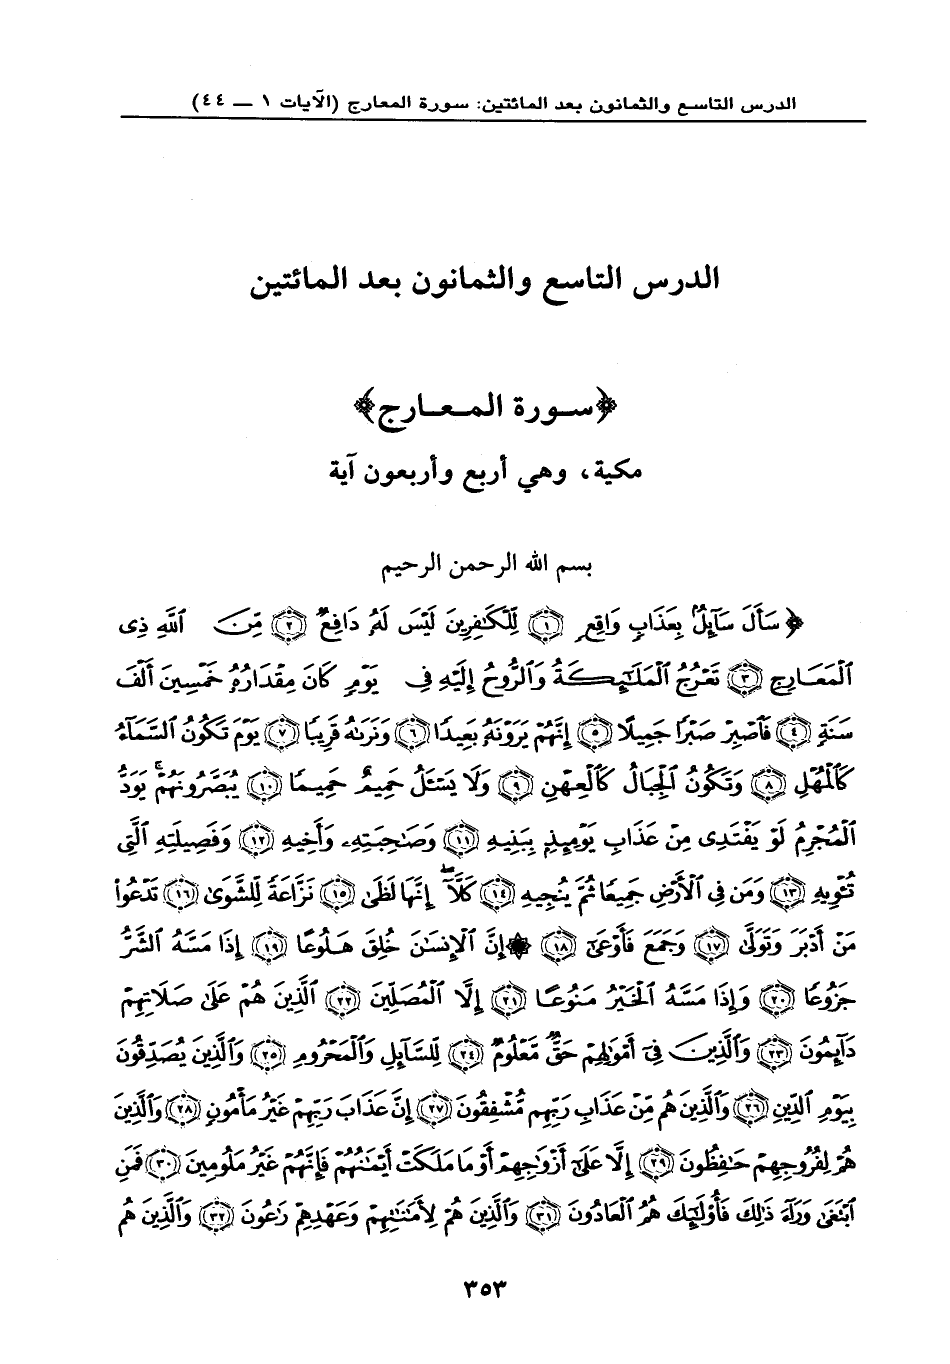 الدرس التاسع والثمانون بعد المائتين: سورة المعارج (الآيات ١ — ٤٤)
الدرس التاسع والثمانون بعد المائتين
﴿سورة المعارج﴾
مكية، وهي أربع وأربعون آية
بسم الله الرحمن الرحيم
﴿ سَأَلَ سَآئِلٌۢ بِعَذَابٍ وَاقِعٍ ۝١ لِّلۡكَٰفِرِينَ لَيۡسَ لَهُۥ دَافِعٌ ۝٢ مِّنَ ٱللَّهِ ذِى
ٱلۡمَعَارِجِ ۝٣ تَعۡرُجُ ٱلۡمَلَٰٓئِكَةُ وَٱلرُّوحُ إِلَيۡهِ فِى يَوۡمٍ كَانَ مِقۡدَارُهُۥ خَمۡسِينَ أَلۡفَ
سَنَةٍ ۝٤ فَٱصۡبِرۡ صَبۡرًا جَمِيلًا ۝٥ إِنَّهُمۡ يَرَوۡنَهُۥ بَعِيدًا ۝٦ وَنَرَىٰهُ قَرِيبًا ۝٧ يَوۡمَ تَكُونُ ٱلسَّمَآءُ
كَٱلۡمُهۡلِ ۝٨ وَتَكُونُ ٱلۡجِبَالُ كَٱلۡعِهۡنِ ۝٩ وَلَا يَسۡـَٔلُ حَمِيمٌ حَمِيمًا ۝١٠ يُبَصَّرُونَهُمۡۚ يَوَدُّ
ٱلۡمُجۡرِمُ لَوۡ يَفۡتَدِى مِنۡ عَذَابِ يَوۡمِئِذٍۭ بِبَنِيهِ ۝١١ وَصَٰحِبَتِهِۦ وَأَخِيهِ ۝١٢ وَفَصِيلَتِهِ ٱلَّتِى
تُـٔۡوِيهِ ۝١٣ وَمَن فِى ٱلۡأَرۡضِ جَمِيعًا ثُمَّ يُنجِيهِ ۝١٤ كَلَّآۖ إِنَّهَا لَظَىٰ ۝١٥ نَزَّاعَةً لِّلشَّوَىٰ ۝١٦ تَدۡعُواْ
مَنۡ أَدۡبَرَ وَتَوَلَّىٰ ۝١٧ وَجَمَعَ فَأَوۡعَىٰٓ ۝١٨ ۞إِنَّ ٱلۡإِنسَٰنَ خُلِقَ هَلُوعًا ۝١٩ إِذَا مَسَّهُ ٱلشَّرُّ
جَزُوعًا ۝٢٠ وَإِذَا مَسَّهُ ٱلۡخَيۡرُ مَنُوعًا ۝٢١ إِلَّا ٱلۡمُصَلِّينَ ۝٢٢ ٱلَّذِينَ هُمۡ عَلَىٰ صَلَاتِهِمۡ
دَآئِمُونَ ۝٢٣ وَٱلَّذِينَ فِىٓ أَمۡوَٰلِهِمۡ حَقٌّ مَّعۡلُومٌ ۝٢٤ لِّلسَّآئِلِ وَٱلۡمَحۡرُومِ ۝٢٥ وَٱلَّذِينَ يُصَدِّقُونَ
بِيَوۡمِ ٱلدِّينِ ۝٢٦ وَٱلَّذِينَ هُم مِّنۡ عَذَابِ رَبِّهِم مُّشۡفِقُونَ ۝٢٧ إِنَّ عَذَابَ رَبِّهِمۡ غَيۡرُ مَأۡمُونٍ ۝٢٨ وَٱلَّذِينَ
هُمۡ لِفُرُوجِهِمۡ حَٰفِظُونَ ۝٢٩ إِلَّا عَلَىٰٓ أَزۡوَٰجِهِمۡ أَوۡ مَا مَلَكَتۡ أَيۡمَٰنُهُمۡ فَإِنَّهُمۡ غَيۡرُ مَلُومِينَ ۝٣٠ فَمَنِ
ٱبۡتَغَىٰ وَرَآءَ ذَٰلِكَ فَأُوْلَٰٓئِكَ هُمُ ٱلۡعَادُونَ ۝٣١ وَٱلَّذِينَ هُمۡ لِأَمَٰنَٰتِهِمۡ وَعَهۡدِهِمۡ رَٰعُونَ ۝٣٢ وَٱلَّذِينَ هُم
٣٥٣